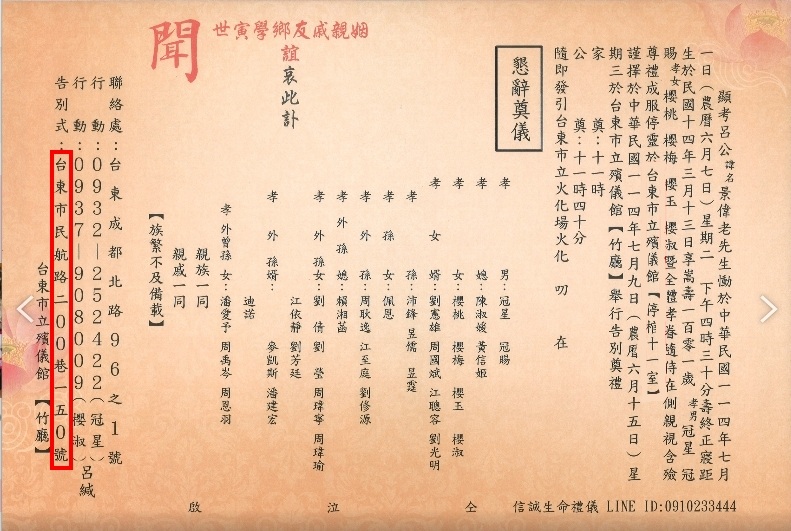 顯考呂公諱名景偉老先生慟於中華民國一一四年七月
一日（農曆六月七日）星期二　下午四時三十分壽終正寢距
生於民國十四年三月十三日享嵩壽一百零一歲　孝男冠星　冠
賜孝女櫻桃　櫻梅　櫻玉　櫻淑暨全體孝眷隨侍在側親視含殮
尊禮成服停靈於台東市立殯儀館【停柩十一室】
謹擇於中華民國一一四年七月九日（農曆六月十五日）星
期三於台東市立殯儀館【竹廳】舉行告別奠禮
家　　奠：十一時
公　　奠：十一時四十分
隨即發引台東市立火化場火化　叨　在
懇辭奠儀
孝　男：冠星　冠賜
媳：陳淑媛　黃信姬
孝　女：櫻桃　櫻梅　櫻玉　櫻淑
孝　女　婿：劉憲雄　周國斌　江聰容　劉光明
孝　孫：沛鋒　昱儒　昱霆
孝　孫　女：佩恩
孝　外　孫：周耿逸　江至庭　劉修源
孝　外　孫　媳：賴湘菡
孝　外　孫　女：劉　倩　劉　瑩　周瑋寧　周瑋瑜
江依靜　劉芳廷
孝　外　孫　婿：麥凱斯　潘建宏
迪諾
孝　外曾孫　女：潘愛予　周禹岑　周恩羽
親族一同
親戚一同
【族繁不及備載】
仝　泣　啟
姻親戚友鄉學寅世
誼
哀此訃
聞
聯絡處：台東成都北路９６之１號
行　動：０９３２－２５２４２２（冠星）
行　動：０９３７－９０８００９（櫻淑）
呂緘
告別式：台東市民航路二００巷一五０號
台東市立殯儀館【竹廳】
信誠生命禮儀 LINE ID:0910233444